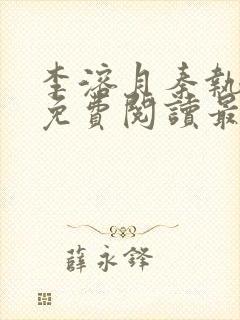 李溶月秦執
免費閱讀最
薛永鋒